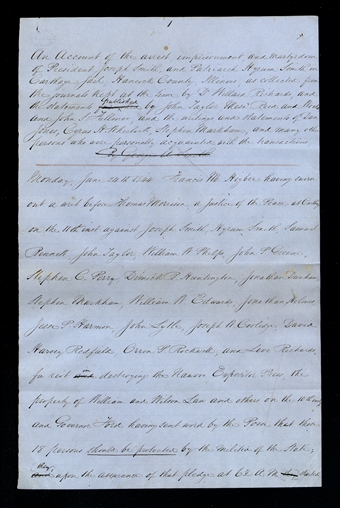 An Account of the arrest imprisonment and martyrdom
of President Joseph Smith, and Patriarch Hyrum Smith, in
Carthage Jail, Hancock County, Illinois as collected from
the journals kept at the time by Dr Willard Richards, and
the statements published by John Taylor, Messrs Reid and Woods
and John S. Fullmer and the writings and statements of Dan
Jones, Cyrus H. Wheelock, Stephen Markham, and many other
persons who are personally acquainted with the transactions
By George A. Smith
Monday, June 24th 1844. Francis M. Higbee having sworn
out a writ before Thomas Morrison, a justice of the Peace, at Carthage
on the 11th inst against Joseph Smith, Hyrum Smith, Samuel
Bennett, John Taylor, William W. Phelps, John P. Greene,
Stephen C. Perry, Dimick B. Huntington, Jonathan Dunham
Stephen Markham, William W. Edwards, Jonathan Holmes,
Jesse P. Harmon, John Lytle, Joseph W. Coolidge, David
Harvey Redfield, Orrin P. Rockwell, and Levi Richards,
for riot destroying the Nauvoo Expositor Press, the
property of William and Wilson Law and others on the
and Governor Ford having sent word by the Posse that those
18 persons should be protected by the militia of the State;
they upon the assurance of that pledge at 6½ A.M. they started